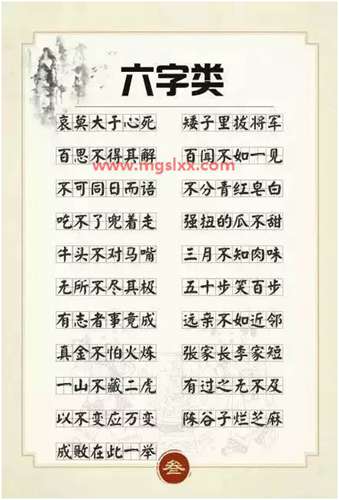 六字类
哀莫大于心死 矮子里拔将军
百思不得其解 百闻不如一见
www.mgslxx.com
不可同日而语 不分青红皂白
吃不了兜着走 强扭的瓜不甜
牛头不对马嘴 三月不知肉味
无所不尽其极 五十步笑百步
有志者事竟成 远亲不如近邻
真金不怕火炼 张家长李家短
一山不藏二虎 有过之无不及
以不变应万变 陈谷子烂芝麻
成败在此一举
叁